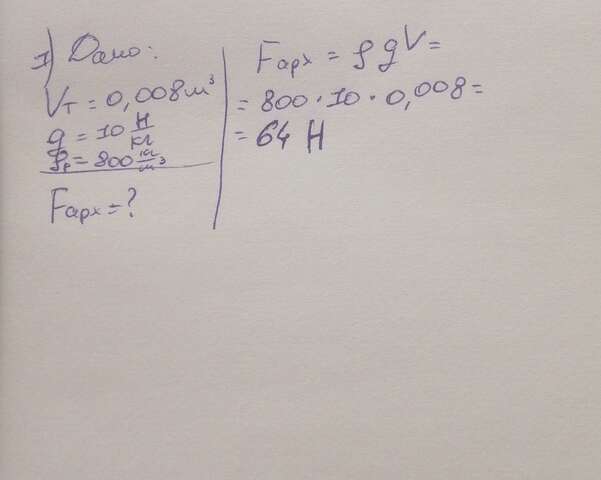 1) Дано:
Vт = 0,008 м³
g = 10 Н/кг
ρр = 800 кг/м³
Fарх = ?
Fарх = ρ g V =
= 800 · 10 · 0,008 =
= 64 Н